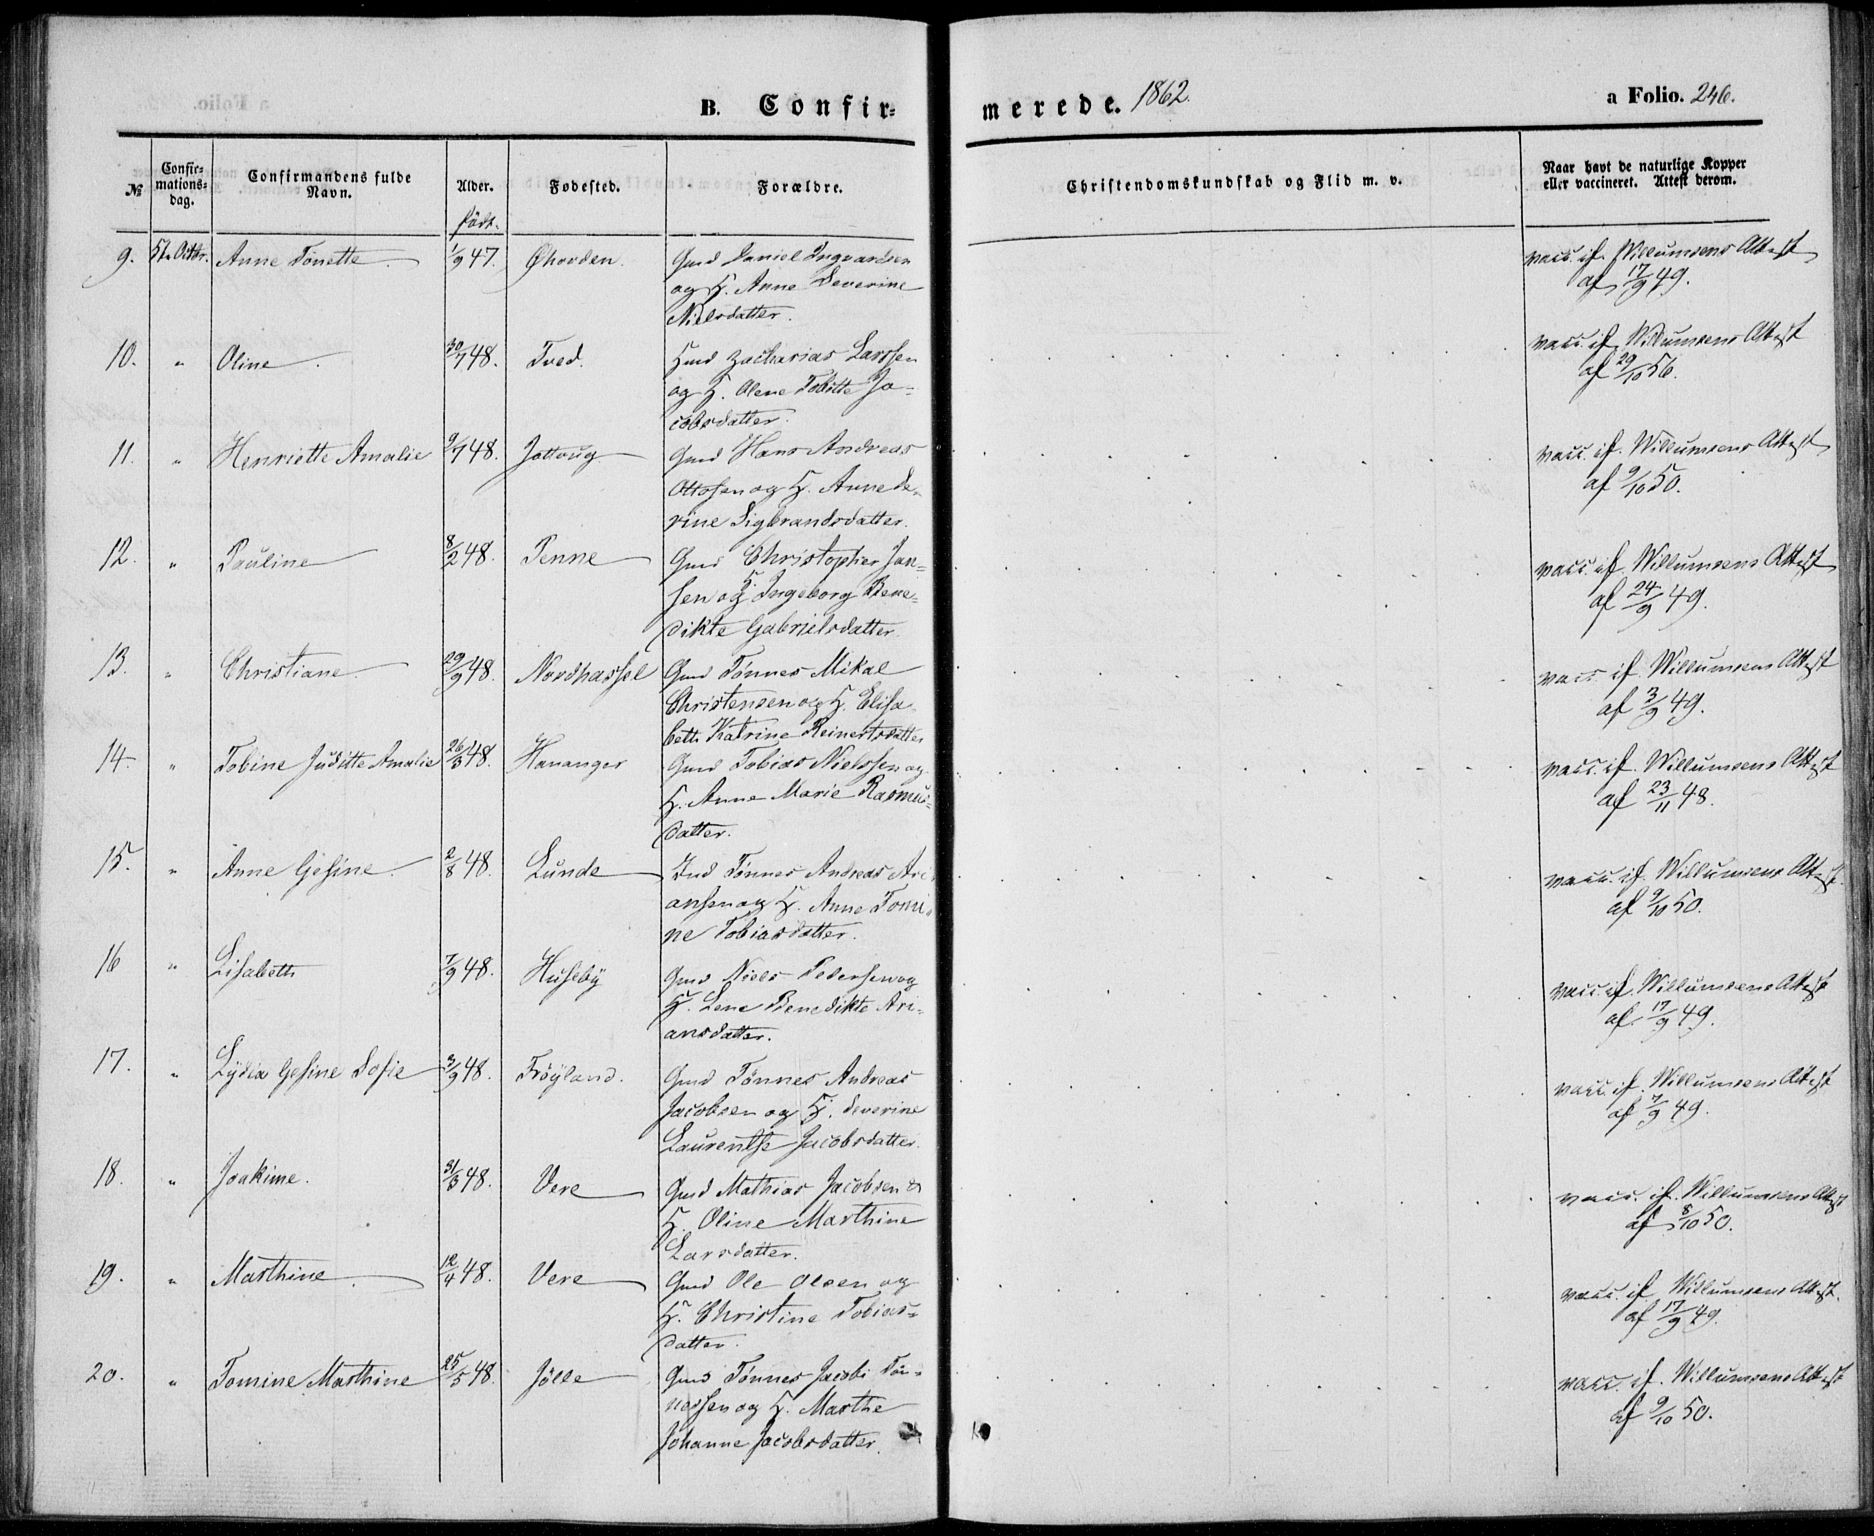 B. Confir-
merede. 1862.
a Folio. 246.
№
Confir-
mations-
dag.
Confirmandens fulde
Navn.
Alder.
Fødested.
Forældre.
Christendomskundskab og Flid m. v.
Naar havt de naturlige Kopper
eller vaccineret. Attest derom.
født.
9. 5te Octbr. Anne Tonette 1/9 47. Øhovden. Gmd Daniel Ingvardsen vacc. if. Willumsens Attest
og H. Anne Severine af 17/9 49.
Nielsdatter.
10. " Oline 30/7 48. Tved. Hmd Zacharias Larssen vacc. if. Willumsens Attest
og H. Olene Tobitte Ja- af 29/10 56.
cobsdatter.
11. " Henriette Amalie 9/7 48. Jottoug Gmd Hans Andreas vacc. if. Willumsens Attest
Ottosen og H. Anne Se- af 9/10 50.
rine Sigbrandsdatter.
12. " Pauline 8/2 48. Penne Gmd Christopher Jan- vacc. if. Willumsens Attest
sen og H. Ingeborg Bene- af 24/9 49.
dikte Gabrielsdatter.
13. " Christiane 29/9 48. Nordhassel Gmd Tønnes Mikal vacc. if. Willumsens Attest
Christensen og H. Elisa- af 3/9 49.
beth Katrine Reinertsdatter
14. " Tobine Juditte Amalie 26/3 48. Hananger Gmd Tobias Nielssen og vacc. if. Willumsens Attest
H. Anne Marie Rasmus- af 23/11 48.
datter.
15. " Anne Gesine 2/8 48. Lunde Ind Tønnes Andreas Ari- vacc. if. Willumsens Attest
ansen og H. Anne Tomi- af 9/10 50.
ne Tobiasdatter.
16 " Lisabeth 7/9 48. Huseby Gmd Niels Pedersen og vacc. if. Willumsens Attest
H. Lene Benedikte Ari- af 17/9 49.
ansdatter.
17. " Lydea Gesine Sofie 3/9 48. Frøyland. Gmd Tønnes Andreas vacc. if. Willumsens Attest
Jacobsen og H. Severine af 7/9 49.
Laurentse Jacobsdatter.
18. " Joakime. 31/3 48. Vere Gmd Mathias Jacobsen & vacc. if. Willumsens Attest
H. Oline Marthine af 8/10 50.
Larsdatter.
19. " Marthine 12/4 48. Vere Gmd Ole Olsen og vacc. if. Willumsens Attest.
H. Christine Tobias- af 17/9 49.
datter.
20. " Tomine Marthine 25/5 48. Jölle Gmd Tønnes Jacobi Tøn- vacc. if. Willumsens Attest
nessen og H. Marthe af 9/10 50.
Johanne Jacobsdatter.